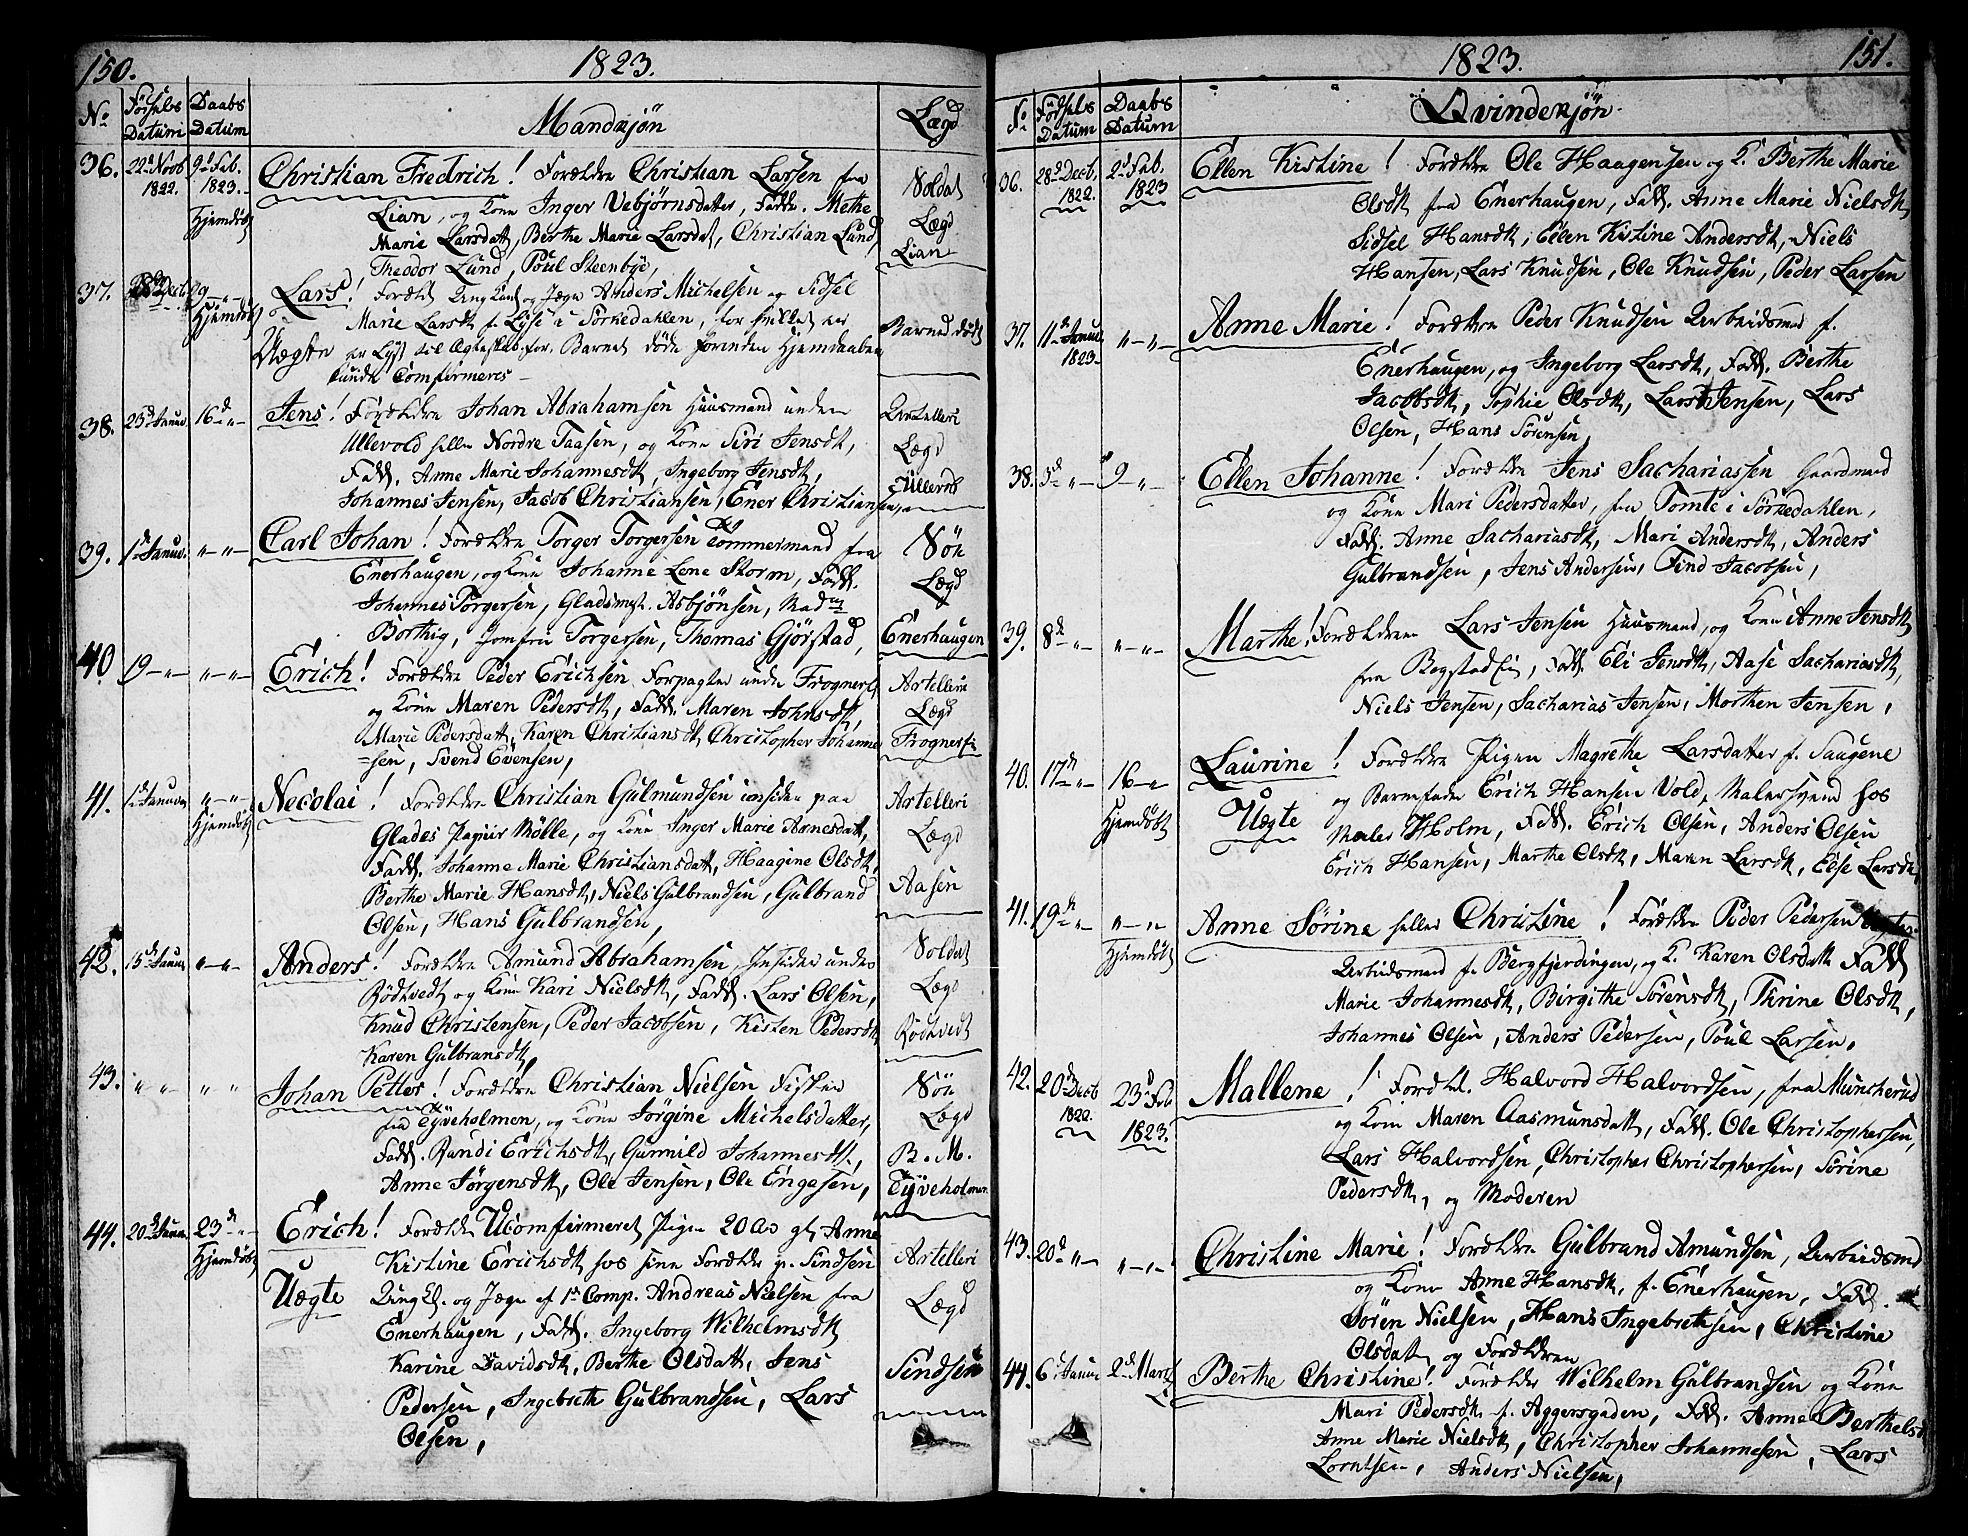 150. 1823.
No Födsels Datum Daabs Datum Mandkjön Lægd
36. 22d Novb 1822. 9d Feb. 1823. Hjemdöbt Christian Fredrich! Foræld​re Christian Larsen fra Soldat
Lian, og Kone Inger Vebjörnsdatter, Fadd. Methe Lægd
Marie Larsdatt, Berthe Marie Larsdat, Christian Lund, Lian
Theodor Lund, Poul Steenbye,
37. Decb. 9 – „ – Hjemdöbt Lars! Foræld. Ung Karl og Jæger Anders Michelsen og Sidsel
Marie Larsdt f. Lyse i Sörkedahlen, for hvilket er Barnet dödt
Uægte er Lyst til Ægteskab. for. Barnet döde forinden Hjemdaaben
kunde Comfirmeres –
38. 23d Janua. 16d – „ – Jens! Forældre Johan Abrahamsen Huusmand under Artelleri
Ullevold heller Nordre Taasen, og Kone Siri Jensdt, Lægd
Fadd. Anne Marie Johannesdt, Ingeborg Jensdt, Ullevol
Johannes Jensen, Jacob Christiansen, Ener Christiansen,
39. 1st Janua. „ – „ – Carl Johan! Forældre Torger Torgersen Tömmermand fra Söe
Enerhaugen, og Kone Johanne Lene Storm, Fadd. Lægd
Johannes Torgersen, Gladsmst. Asbjönsen, Madm
Borthig, Jomfru Torgersen, Thomas Gjörstad, Enerhaugen
40 19 – „ – „ – „ – Erich! Forældre Peder Erichsen Forpagter under Frogner Artelleri
og Kone Maren Pedersdt, Fadd. Maren Johnsdt, Lægd
Marie Pedersdatt, Karen Christiansdt, Christopher Johanne
=sen, Svend Evensen,
41. „ – „ – Hjemdöbt Necolai! Forældre Christian Gulmundsen insidder paa Artelleri
Glades Papiir Mölle, og Kone Inger Marie Arnesdatt, Lægd
Fadd. Johanne Marie Christiansdatt, Haagine Olsdt,
Berthe Marie Hansdt, Niels Gulbrandsen, Gulbrand Aasen
Olsen, Hans Gulbrandsen,
42. „ – „ – Anders! Forældre Amund Abrahamsen, Insidder under Soldat
Rödtvedt og Kone Kari Nielsdt, Fadd. Lars Olsen, Lægd
Knud Christensen, Peder Jacobsen, Kisten Pedersdt Rödtvedt
Karen Gulbransdt,
43. „ „ „ „ Johan Petter! Forældre Christian Nielsen Fisker Söe
fra Tyveholmen, og Kone Jörgine Michelsdatter, Lægd
Fadd. Randi Erichsdt, Gunnild Johannesdt, B. M.
Anne Jörgensdt, Ole Jensen, Ole Engesen, Tyveholmen
44. 20de Janua. 23d – „ – Hjemdöbt Erich! Forældre Ucomfirmeret Pigen 20 Aar gl. Anne
Kistine Erichsdt hos sine Forældre p. Sindsen Artelleri
Uægte Ung K. og Jæger af 1st Comp. Andreas Nielsen fra Lægd
Enerhaugen, Fadd. Ingeborg Wilhelmsdt
Karine Davidsdt, Berthe Olsdatt, Jens Sindsen
Pedersen, Ingebreth Gulbrandsen, Lars
Olsen,
1823. 151.
No Födsels Datum Daabs Datum Qvindekjön.
36. 28d Decb. 1822. 2d Feb. 1823 Ellen Kistine! Forældre Ole Haagensen og K. Berthe Marie
Olsdt fra Enerhaugen, Fadd. Anne Marie Nielsdt
Sidsel Hansdt, Ellen Kistine Andersdt, Niels
Hansen, Lars Knudsen, Ole Knudsen, Peder Larsen
37. 11te Janua. 1823– „ – „ – Anne Marie! Forældre Peder Knudsen Arbeidsmd f.
Enerhaugen, og Ingeborg Larsdt, Fadd. Berthe
Jacobsdt, Sophie Olsdt, Lars Jensen, Lars
Olsen, Hans Sörensen,
38. 3de „ – 9 – „ – Ellen Johanne! Forældre Jens Sachariassen Gaardmand
og Kone Mari Pedersdatter, fra Tomte i Sörkedahlen,
Fadd. Anne Sachariasdt, Mari Andersdt, Anders
Gulbrandsen, Jens Andersen, Find Jacobsen,
39. 8de – „ – „ – „ – Marthe! Forældrene Lars Jensen Huusmand, og Kone Anne Jensdt
fra Bogstad Eie, Fadd. Eli Jensdt, Aase Sachariasdt,
Niels Jensen, Sacharias Jensen, Morthen Jensen,
40. 17de – „ – 16 – „ – Hjemdöbt Laurine! Forældre Pigen Magrethe Larsdatter f. Saugene
Uægte og Barnefader Erich Hansen Vold, Malersvend hos
Maler Holm, Fadd. Erich Olsen, Anders Olsen
Erich Hansen, Marthe Olsdt, Maren Larsdt, Else Larsdt
41. 19de – „ – „ – „ – Hjemdöbt Anne Sörine heller Christine! Forældre Peder Pedersen
Arbeidsmand f. Bergfjerdingen, og K. Karen Olsdatt Fadd
Marie Johannesdt, Birgithe Sörensdt, Thrine Olsdt,
Johannes Olsen, Anders Pedersen, Poul Larsen,
42. 20d Decb 1822. 23d Feb. 1823. Mallene! Foræld. Halvord Halvordsen, fra Muncherud
og Kone Maren Aasmunsdatt, Fadd. Ole Christophersen,
Lars Halvordsen, Christopher Christophersen, Sörine
Pedersdt, og Moderen
43. 20d „ – „ – „ – Christine Marie! Forældre Gulbrand Amundsen, Arbeidsmd
og Kone Anne Hansdt, f. Enerhaugen, Fadd.
Sören Nielsen, Hans Ingebretsen, Christine
Olsdatt og Forældrene
44. 6te Janua 2de Marts Berthe Christine! Forældre Wilhelm Gulbrandsen og Kone
Mari Pedersdt f. Aggersgaden, Fadd. Anne Berthelsdt
Anne Marie Nielsdt, Christopher Johannesen, Lars
Lorntsen, Anders Nielsen,